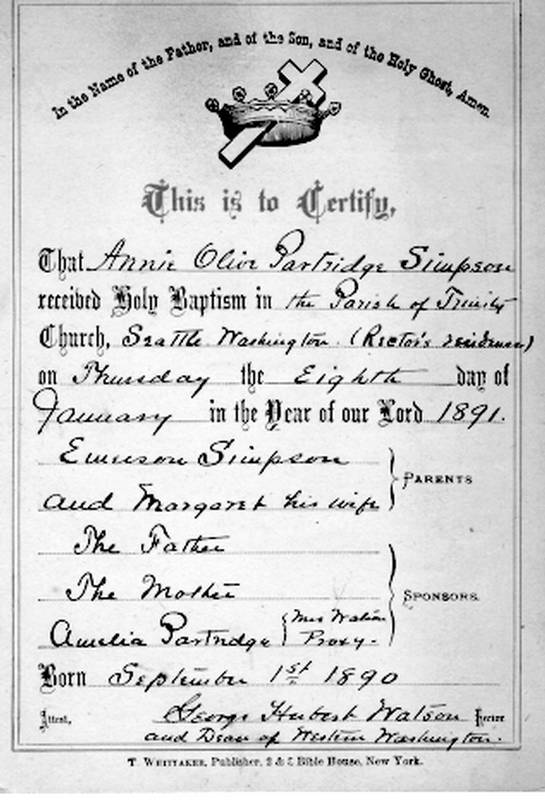 In the Name of the Father, and of the Son, and of the Holy Ghost, Amen.
This is to Certify,
That Annie Olive Partridge Simpson
received Holy Baptism in the Parish of Trinity
Church, Seattle Washington. (Rector's residence)
on Thursday the Eighth day of
January in the Year of our Lord 1891.
Emerson Simpson
and Margaret his wife } PARENTS
The Father
The Mother } SPONSORS.
Amelia Partridge { Mrs Watson Proxy.
Born September 1st 1890
Attest, George Herbert Watson Rector
and Dean of Western Washington.
T. WHITTAKER, Publisher, 2 & 3 Bible House, New York.